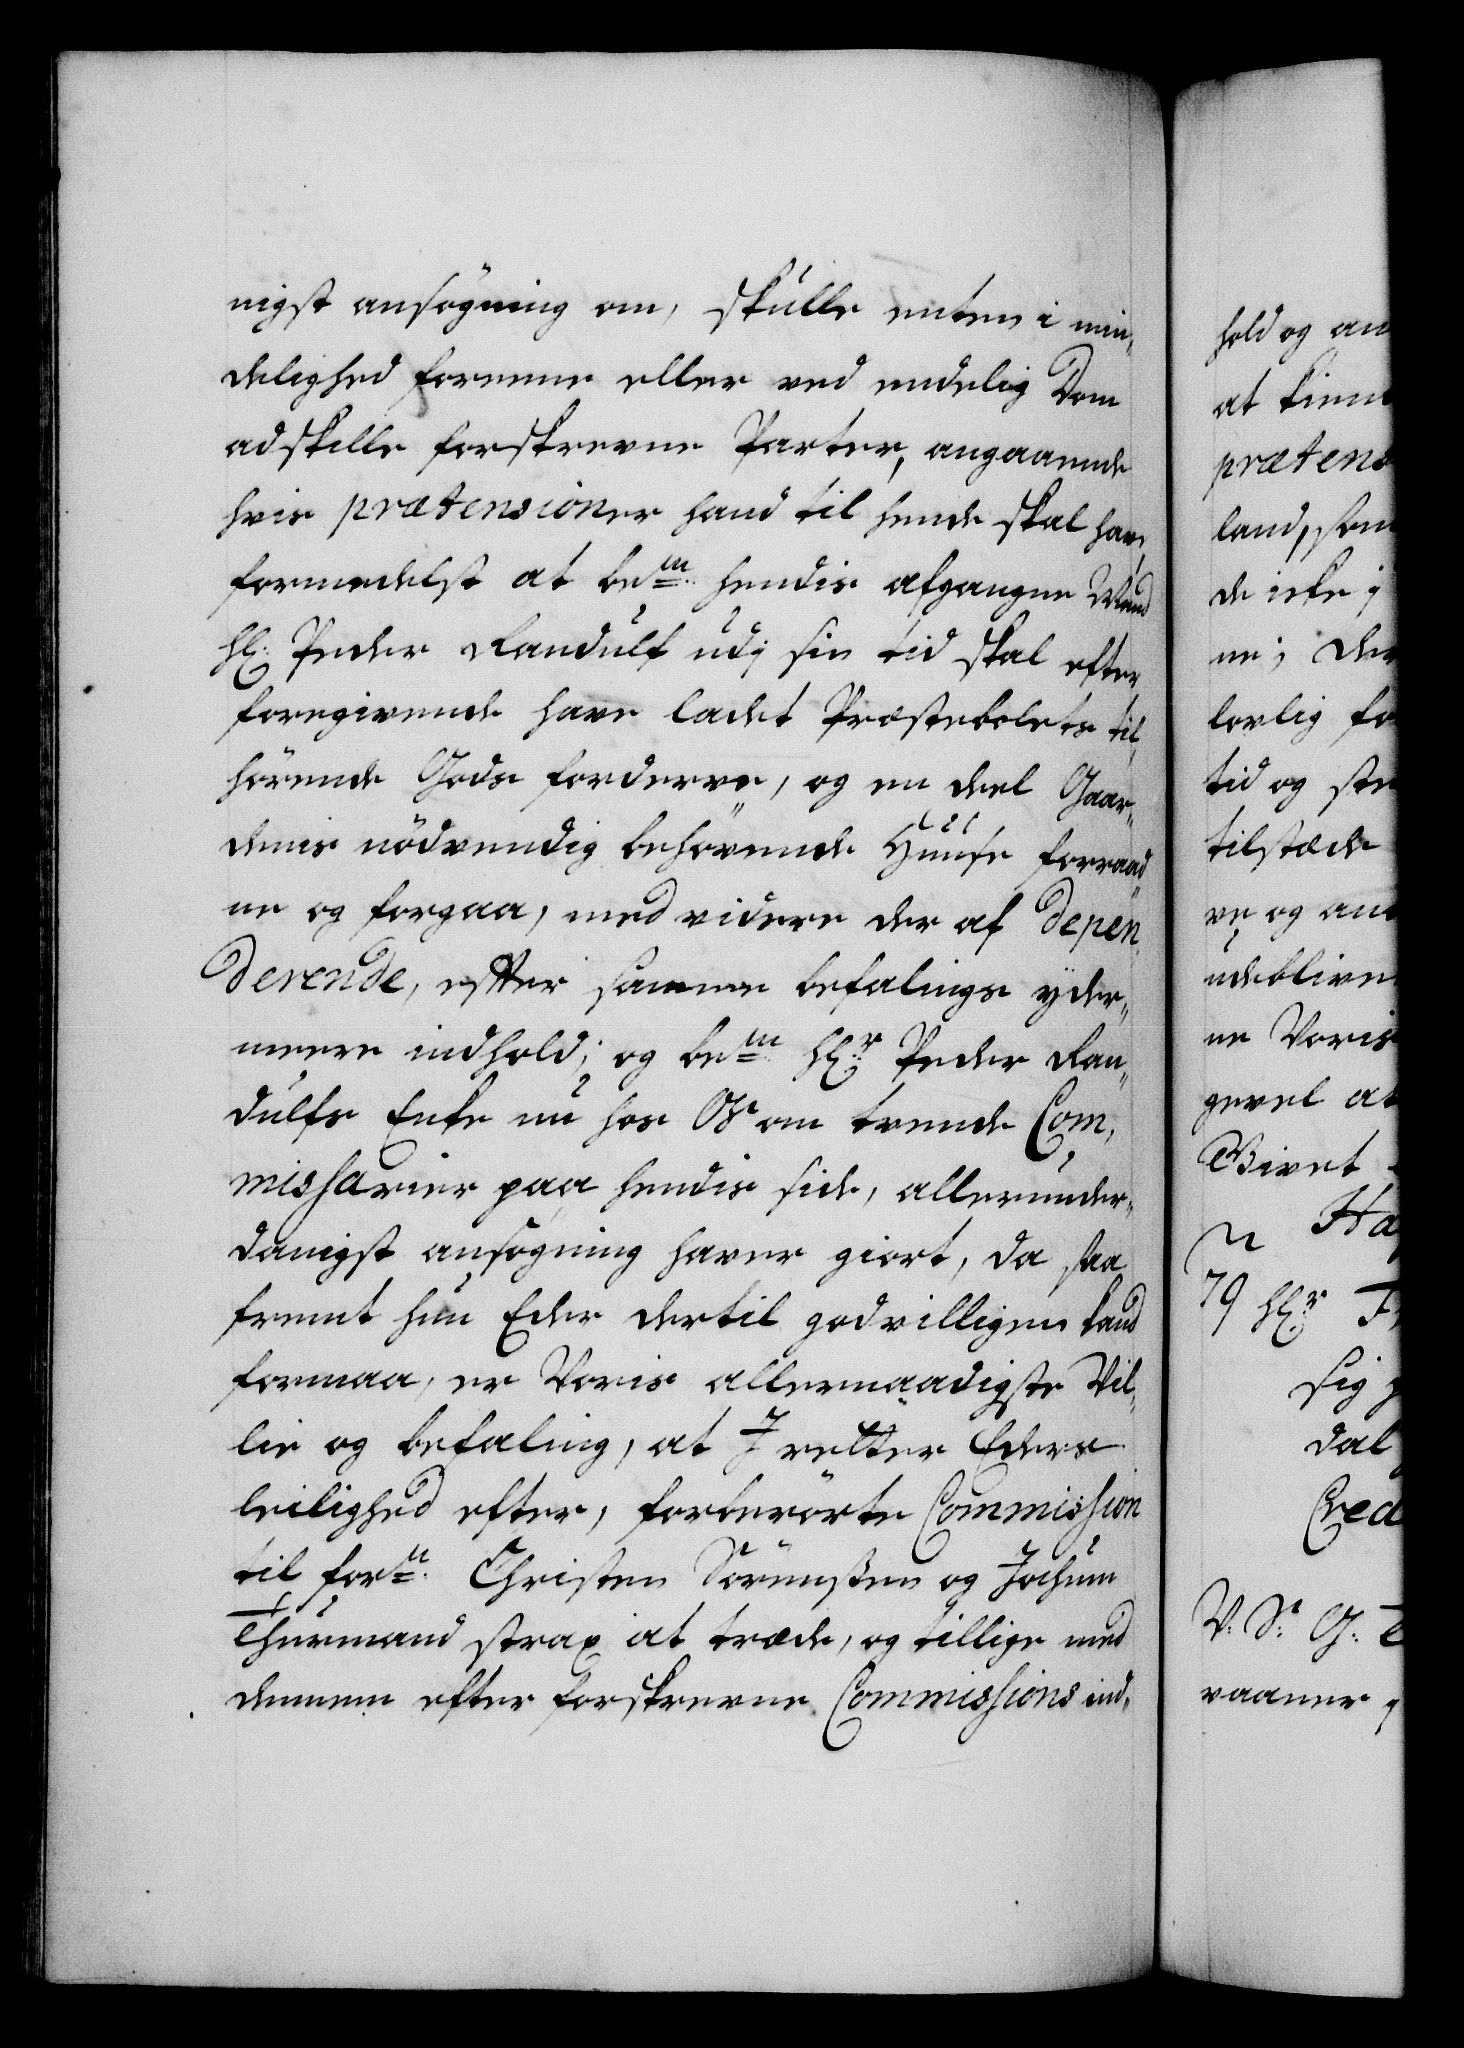 nigst ansøgning om, skulle enten i min,,
delighed foreene eller ved endelig Dom
adskille forskrevne Parter, angaaende
hvis prætensioner hand til hende skal have
formedelst at bem:te hendis afgangne Mand
Hr: Peder Randulf udj sin tid skal efter
foregivende have ladet Præstebolets til,,
hörende Gods forderve, og en deel Gaar,,
denis nödvendig behövende Huuse forraad,,
ne og forgaa, med videre der af depen,,
derende, efter samme befalings yder,,
meere indhold; og bem:te Hr: Peder Ran,,
dulfs Enke nu hos Os om tvende Com,,
missarier paa hendis side, allerunder,,
danigst ansögning haver giort, da saa
fremt hun Eder dertil godvilligen kand
formaa, er Voris allernaadigste Vil,,
lie og befaling, at I retter Eders
leilighed efter, forberörte Commission
til form: Christen Sörenssen og Jochum
Thurmand strax at træde, og tillige med
dennem efter forskrevne Commissions ind,,
hold og an
at kiend
prætens
land, som
de icke j
ne; der
lovlig for
tid og ste
tilstæde
ve og an
udebliven
ne Voris
gevel at
Givet
Ha
79 Hr: F
sig
dal
Cred
V. S: G: T
vaaner